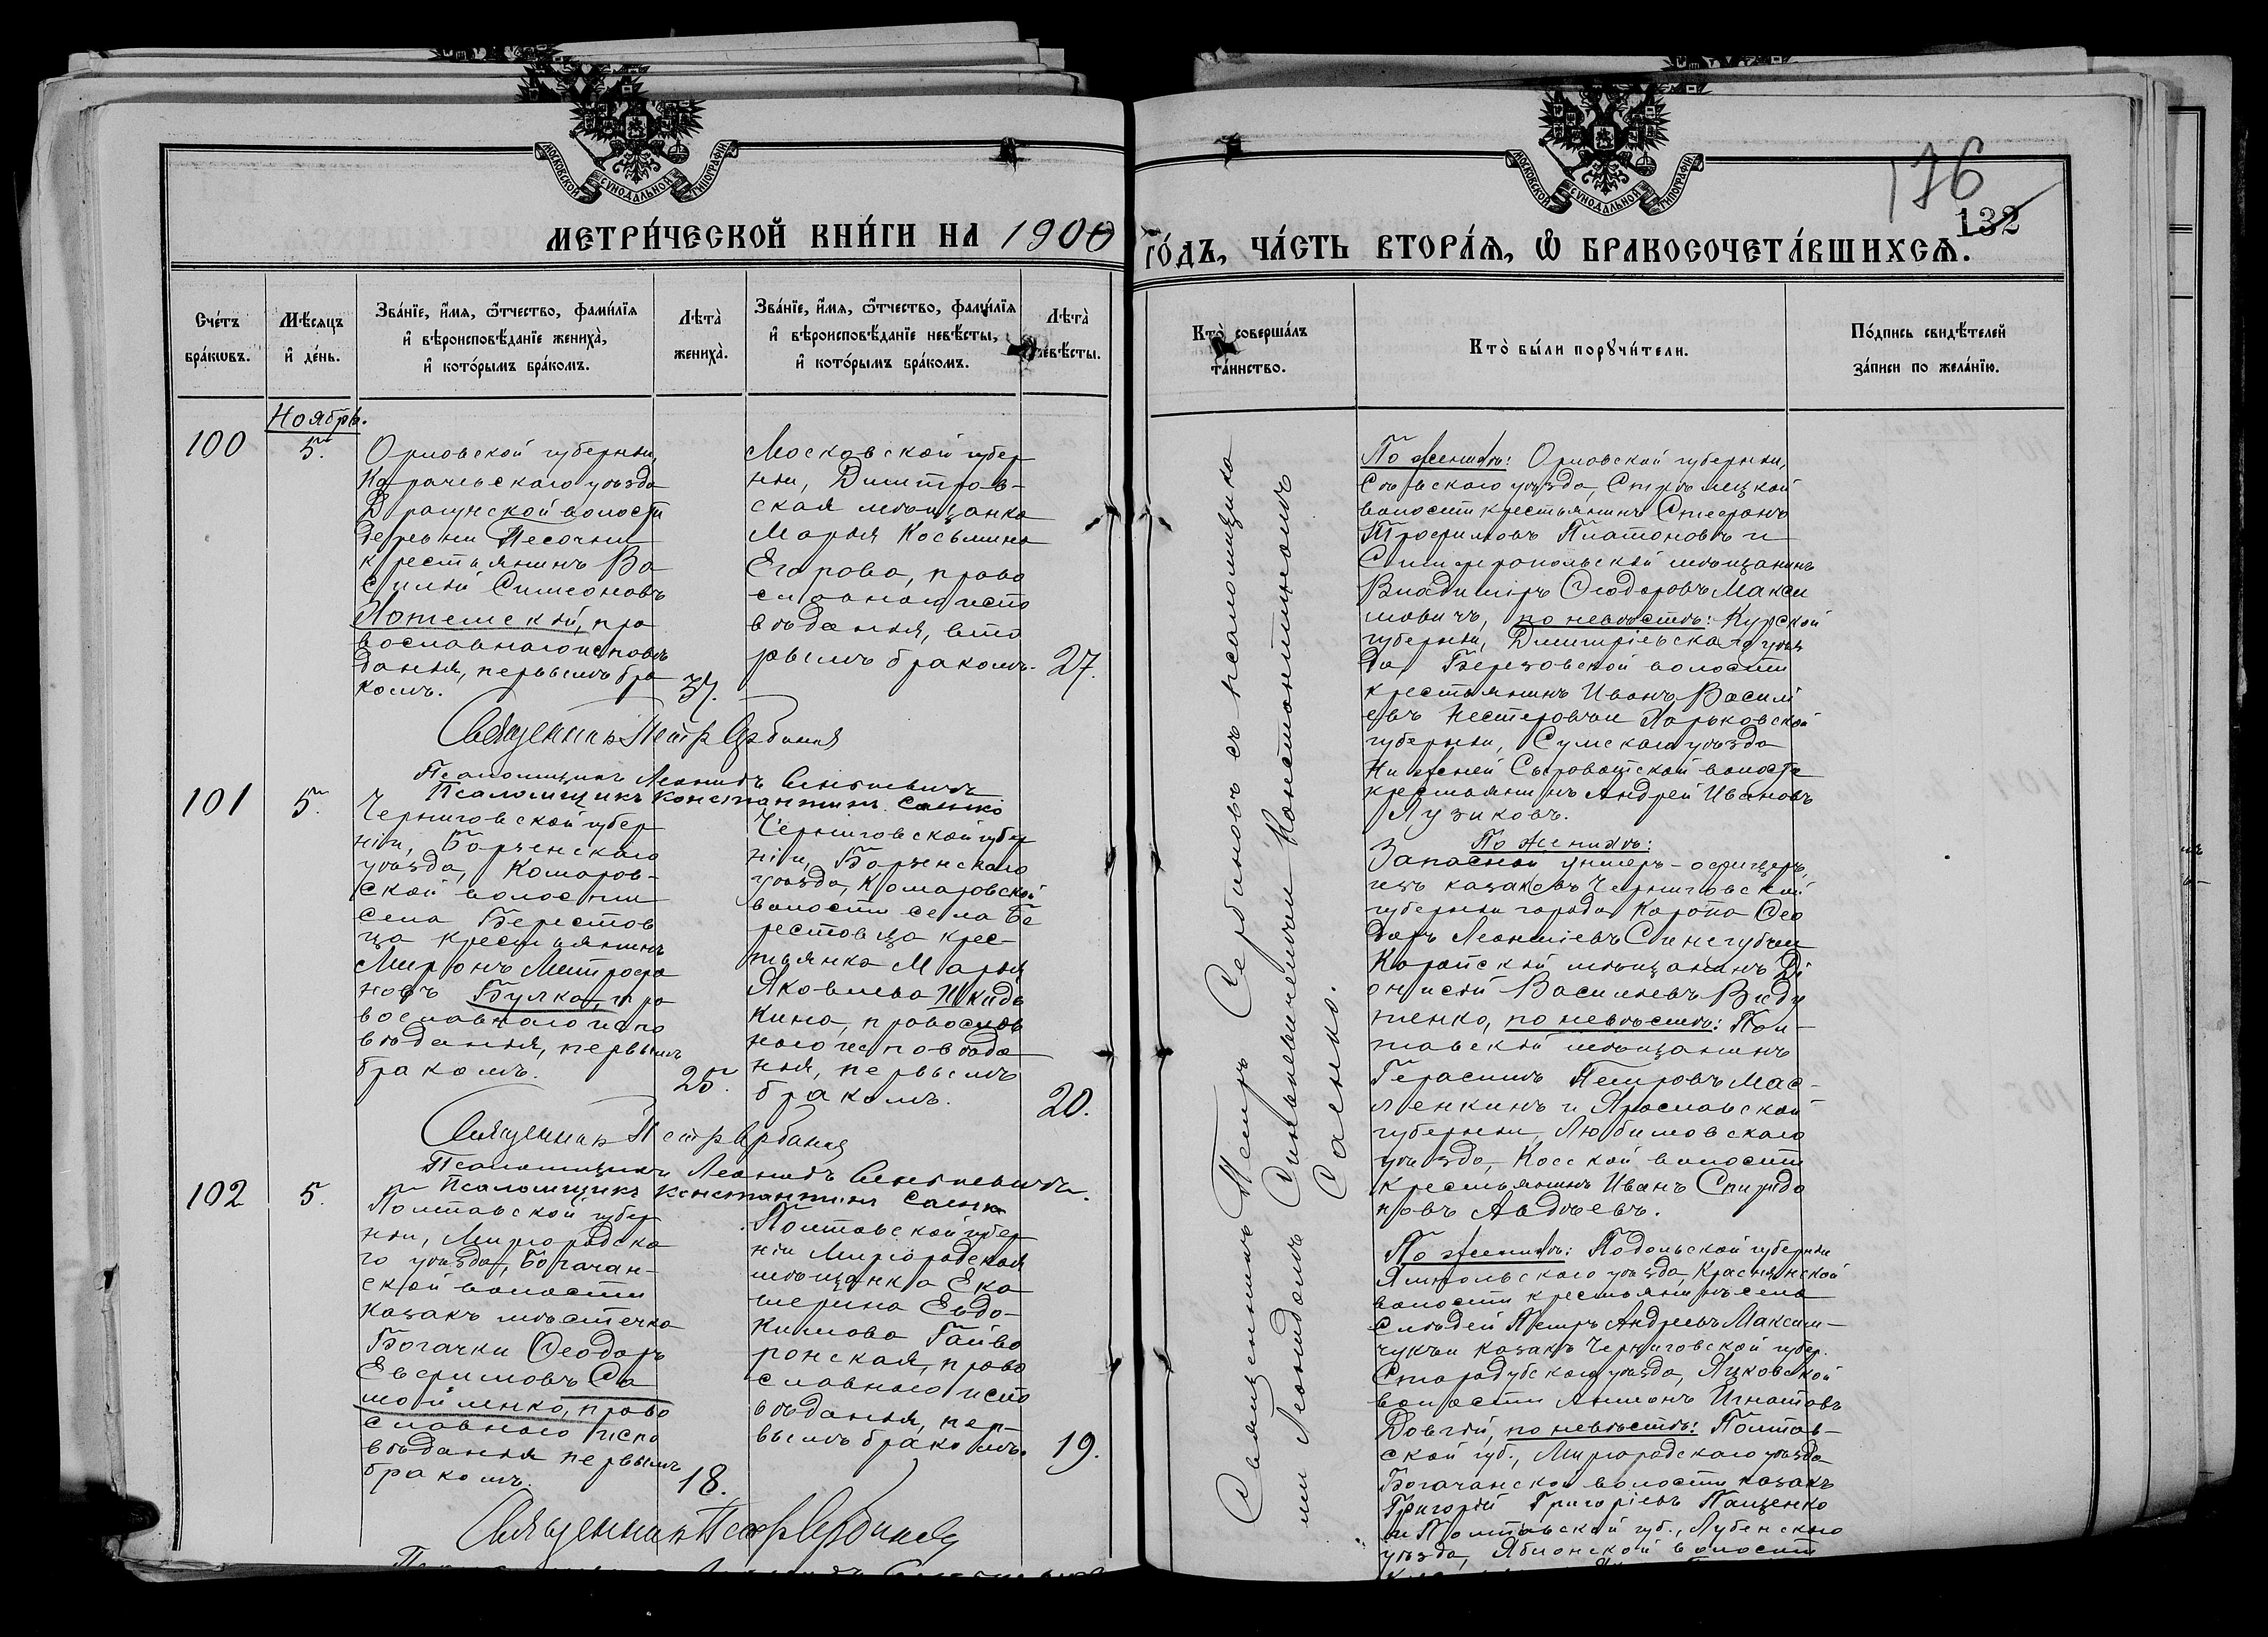 МОСКОВСКОЙ СУНОДАЛЬНОЙ ТИПОГРАФІИ
МЕТРИ́ЧЕСКОЙ КНИ́ГИ НА 1900
Сче́тъ бра́кωвъ.
Мѣ́сяцъ и҆ де́нь.
Зва́нїе, и҆́мя, ѻ҆́тчество, фами́лїя и҆ вѣроисповѣ́данїе жениха̀, и҆ кото́рымъ бра́комъ.
Лѣта̀ жениха̀.
Зва́нїе, и҆́мя, ѻ҆́тчество, фами́лїя и҆ вѣроисповѣ́данїе невѣ́сты, и҆ кото́рымъ бра́комъ.
Лѣта̀ невѣ́сты.
Ноябрь.
100
5.
Орловской губерніи,
Карачевскаго уѣзда
Драгунской волости
деревни Песочни
крестьянинъ Ва
силій Симеоновъ
Хотемскій, пра
вославнаго исповѣ
данія, первымъ бра
комъ.
37.
Московской губер
ніи, Дмитров-
ская мѣщанка
Марія Косьмина
Егорова, право
славнаго испо
вѣданія, вто
рымъ бракомъ.
27.
Священникъ Петръ Сербиновъ
Псаломщикъ Леонидъ Синькевичъ
Псаломщикъ Константинъ Саенко
101
5.
Черниговской губер
ніи, Борзенскаго
уѣзда, Комаров-
ской волости
села Берестов
ца крестьянинъ
Миронъ Митрофа
новъ Булка, пра
вославнаго испо
вѣданія, первымъ
бракомъ.
25.
Черниговской губер
ніи, Борзенскаго
уѣзда, Комаровской
волости села Бе
рестовца крес-
тьянка Марія
Яковлева Шкидь
кина, православ
наго исповѣда
нія, первымъ
бракомъ.
20.
Священникъ Петръ Сербиновъ
Псаломщикъ Леонидъ Синькевичъ.
Псаломщикъ Константинъ Саенко
102
5.
Полтавской губер
ніи, Миргородска
го уѣзда, Богачан-
ской волости
казакъ мѣстечка
Богачки Ѳеодоръ
Евфимовъ Са
мойленко, право
славнаго испо
вѣданія первымъ
бракомъ.
18.
Полтавской губер
ніи Миргородская
мѣщанка Ека
терина Евдо-
кимова Гайво
ронская, право
славнаго испо
вѣданія, пер-
вымъ бракомъ.
19.
Священникъ Петръ Сербиновъ
МОСКОВСКОЙ СУНОДАЛЬНОЙ ТИПОГРАФІИ
176
132
ГО́ДЪ, ЧА́СТЬ ВТОРА́Я, Ѡ҆ БРАКОСОЧЕТА́ВШИХСЯ.
Кто̀ соверша́лъ та́инство.
Кто̀ бы́ли порꙋчи́тели.
По́дпись свидѣ́телей за́писи по жела́нїю.
Священникъ Петръ Сербиновъ съ псаломщика
ми Леонидомъ Синькевичемъ и Константиномъ
Саенко.
По женихѣ: Орловской губерніи,
Сѣвскаго уѣзда, Стрѣлецкой
волости крестьянинъ Стефанъ
Трофимовъ Платоновъ и
Симферопольскій мѣщанинъ
Владиміръ Ѳеодоровъ Макси
мовичъ, по невѣстѣ: Курской
губерніи, Дмитріевскаго уѣз
да, Березовской волости
крестьянинъ Иванъ Василі
евъ Нестеровъ и Харьковской
губерніи, Сумскаго уѣзда
Нижней Сыроватской волости
крестьянинъ Андрей Ивановъ
Лузиковъ.
По женихѣ:
Запасной унтеръ-офицеръ,
изъ казаковъ Черниговской
губерніи города Коропа Ѳео
доръ Леонтіевъ Синегубъ и
Коропскій мѣщанинъ Ді
онисій Васильевъ Види
ченко, по невѣстѣ: Пол-
тавскій мѣщанинъ
Герасимъ Петровъ Мас-
ленкинъ и Ярославской
губерніи, Любимовскаго
уѣзда, Косской волости
крестьянинъ Иванъ Спиридо
новъ Авдѣевъ.
По женихѣ: Подольской губерніи
Ямпольскаго уѣзда, Краснянской
волости крестьянинъ села
Слободей Петръ Андреевъ Максим-
чукъ и казакъ Черниговской губер.
Стародубскаго уѣзда, Яцковской
волости Антонъ Игнатовъ
Довгій, по невѣстѣ: Полтав-
ской губ., Миргородскаго уѣзда
Богачанской волости казакъ
Григорій Григоріевъ Пащенко
и Полтавской губ., Лубенскаго
уѣзда, Яблонской волости